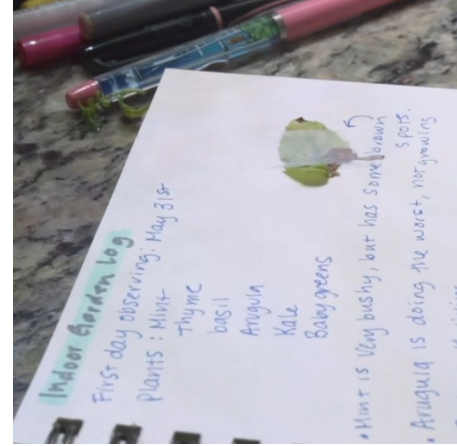 Indoor Garden Log
First day observing: May 31st
Plants: Mint
Thyme
basil
Arugula
Kale
Baby greens
• Mint is very bushy, but has some brown
spots.
Arugula is doing the worst, not growing